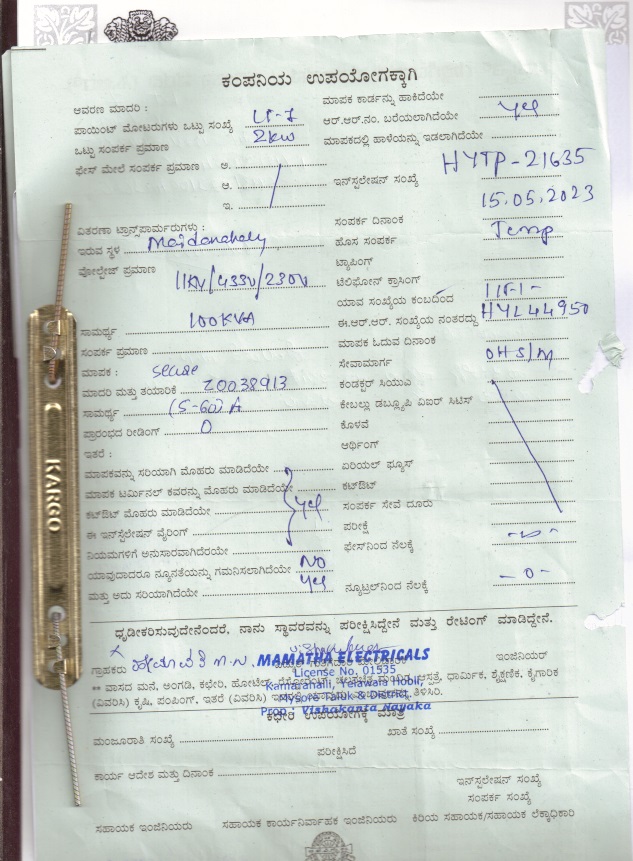 ಕಂಪನಿಯ ಉಪಯೋಗಕ್ಕಾಗಿ
ಆವರಣ ಮಾದರಿ :
ಮಾಪಕ ಕಾರ್ಡನ್ನು ಹಾಕಿದೆಯೇ
ಪಾಯಿಂಟ್ ಮೋಟರುಗಳು ಒಟ್ಟು ಸಂಖ್ಯೆ
ಆರ್.ಆರ್.ನಂ. ಬರೆಯಲಾಗಿದೆಯೇ yes
ಒಟ್ಟು ಸಂಪರ್ಕ ಪ್ರಮಾಣ 2kw
ಮಾಪಕದಲ್ಲಿ ಹಾಳೆಯನ್ನು ಇಡಲಾಗಿದೆಯೇ
ಫೇಸ್ ಮೇಲೆ ಸಂಪರ್ಕ ಪ್ರಮಾಣ ಅ.
ಆ.
ಇ.
ಇನ್ಸ್ಟಲೇಷನ್ ಸಂಖ್ಯೆ HYTP-21635
15.05.2023
ವಿತರಣಾ ಟ್ರಾನ್ಸ್‌ಪಾರ್ಮರುಗಳು :
ಸಂಪರ್ಕ ದಿನಾಂಕ
ಇರುವ ಸ್ಥಳ
ಹೊಸ ಸಂಪರ್ಕ Temp
ಟ್ಯಾಪಿಂಗ್
ವೋಲ್ಟೇಜ್ ಪ್ರಮಾಣ 11KV/433V/230V
ಟೆಲಿಫೋನ್ ಕ್ರಾಸಿಂಗ್
ಯಾವ ಸಂಖ್ಯೆಯ ಕಂಬದಿಂದ
ಸಾಮರ್ಥ್ಯ 100KVA
ಈ.ಆರ್.ಆರ್. ಸಂಖ್ಯೆಯ ನಂತರದ್ದು HYL44950
ಸಂಪರ್ಕ ಪ್ರಮಾಣ
ಮಾಪಕ ಓದುವ ದಿನಾಂಕ
ಮಾಪಕ : secure
ಸೇವಾಮಾರ್ಗ OHS/M
ಮಾದರಿ ಮತ್ತು ತಯಾರಿಕೆ Z0038913
ಕಂಡಕ್ಟರ್ ಸಿಯುವಿ
ಸಾಮರ್ಥ್ಯ (5-60) A
ಕೇಬಲ್ಲು ಡಬ್ಲ್ಯೂಪಿ ವಿಐರ್ ಸಿಟಿಸ್
ಪ್ರಾರಂಭದ ರೀಡಿಂಗ್ 0
ಕೊಳವೆ
ಇತರೆ :
ಅರ್ಥಿಂಗ್
ಮಾಪಕವನ್ನು ಸರಿಯಾಗಿ ಮೊಹರು ಮಾಡಿದೆಯೇ
ಏರಿಯಲ್ ಫ್ಯೂಸ್
ಮಾಪಕ ಟರ್ಮಿನಲ್ ಕವರನ್ನು ಮೊಹರು ಮಾಡಿದೆಯೇ
ಕಟ್‌ಔಟ್
ಕಟ್‌ಔಟ್ ಮೊಹರು ಮಾಡಿದೆಯೇ yes
ಸಂಪರ್ಕ ಸೇವೆ ದೂರು
ಈ ಇನ್ಸ್ಟಲೇಷನ್ ವೈರಿಂಗ್
ಪರೀಕ್ಷೆ
ನಿಯಮಗಳಿಗೆ ಅನುಸಾರವಾಗಿದೆರಯೇ
ಫೇಸ್‌ನಿಂದ ನೆಲಕ್ಕೆ
ಯಾವುದಾದರೂ ನ್ಯೂನತೆಯನ್ನು ಗಮನಿಸಲಾಗಿದೆಯೇ NO
ಮತ್ತು ಅದು ಸರಿಯಾಗಿದೆಯೇ yes
ನ್ಯೂಟ್ರಲ್‌ನಿಂದ ನೆಲಕ್ಕೆ -0-
ಧೃಡೀಕರಿಸುವುದೇನೆಂದರೆ, ನಾನು ಸ್ಥಾವರವನ್ನು ಪರೀಕ್ಷಿಸಿದ್ದೇನೆ ಮತ್ತು ರೇಟಿಂಗ್ ಮಾಡಿದ್ದೇನೆ.
ಗ್ರಾಹಕರು
ಇಂಜಿನಿಯರ್
MAMATHA ELECTRICALS
License No, 01535
Kamarahalli, Yelawala Hobli,
Mysore Taluk & District.
Prop : Vishakanta Nayaka
** ವಾಸದ ಮನೆ, ಅಂಗಡಿ, ಕಛೇರಿ, ಹೋಟೆಲ್, ಆಸ್ಪತ್ರೆ, ಧಾರ್ಮಿಕ, ಶೈಕ್ಷಣಿಕ, ಕೈಗಾರಿಕ
(ವಿವರಿಸಿ) ಕೃಷಿ, ಪಂಪಿಂಗ್, ಇತರೆ (ವಿವರಿಸಿ) ತಿಳಿಸಿರಿ.
ಕಛೇರಿ ಉಪಯೋಗಕ್ಕೆ ಮಾತ್ರ
ಮಂಜೂರಾತಿ ಸಂಖ್ಯೆ
ಖಾತೆ ಸಂಖ್ಯೆ
ಪರೀಕ್ಷಿಸಿದೆ
ಕಾರ್ಯ ಆದೇಶ ಮತ್ತು ದಿನಾಂಕ
ಇನ್ಸ್ಟಲೇಷನ್ ಸಂಖ್ಯೆ
ಸಂಪರ್ಕ ಸಂಖ್ಯೆ
ಸಹಾಯಕ ಇಂಜಿನಿಯರು ಸಹಾಯಕ ಕಾರ್ಯನಿರ್ವಾಹಕ ಇಂಜಿನಿಯರ್ ಕಿರಿಯ ಸಹಾಯಕ/ಸಹಾಯಕ ಲೆಕ್ಕಾಧಿಕಾರಿ
KARGO